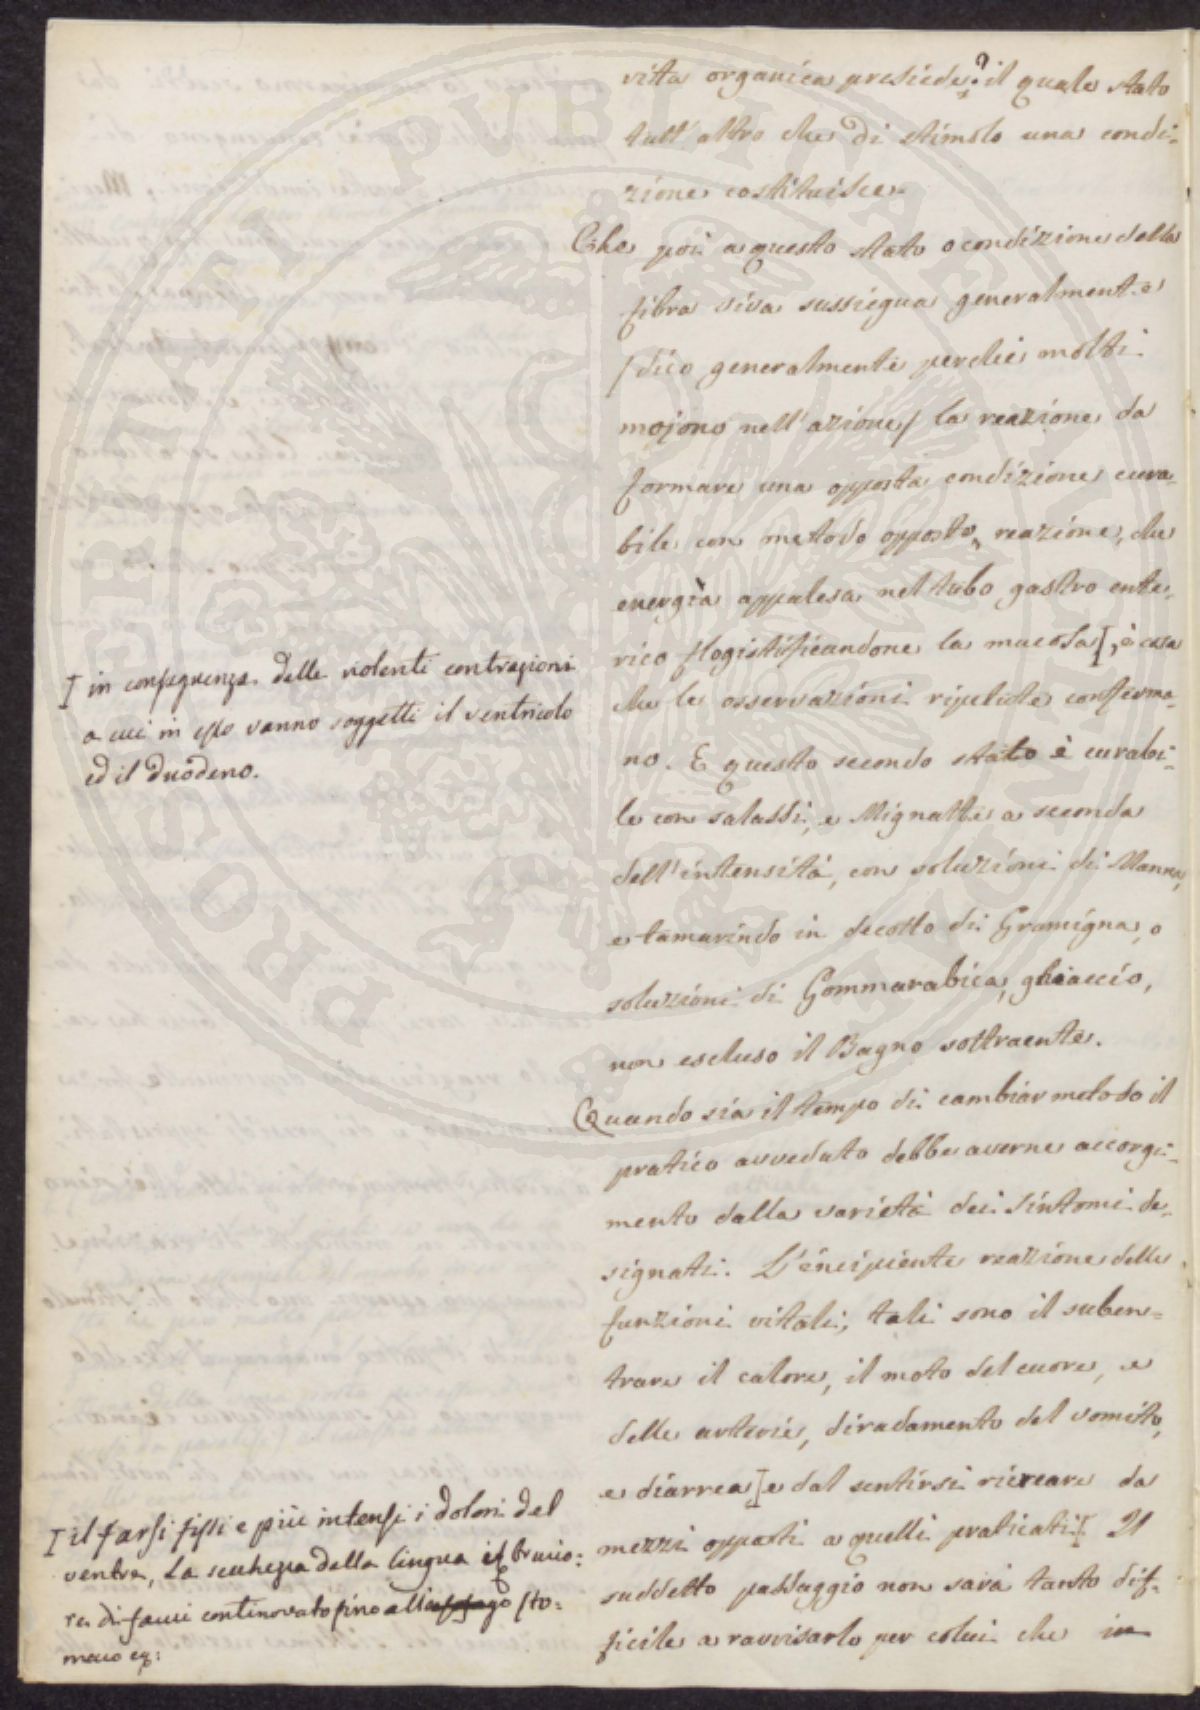 vita organica presiede? il quale stato
tutt'altro che di stimolo una condi-
zione costituisce.
Che poi a questo stato o condizione della
fibra viva sussiegua generalmente
/dico generalmente perchè molti
mojono nell'azione/ la reazione da
formare una opposta condizione cura-
bile con metodo opposto, reazione, che
energia appalesa nel tubo gastro ente-
rico flogistificandone la mucosa [, è cosa
che le osservazioni ripetute conferma-
no. E questo secondo stato è curabi-
le con salassi, e Mignatte a seconda
dell'intensità, con soluzioni di Manna,
e tamarindo in decotto di Gramigna, o
soluzioni di Gommarabica, ghiaccio,
non escluso il Bagno sottraente.
Quando sia il tempo di cambiar metodo il
pratico avveduto debbe averne accorgi-
mento dalla varietà dei Sintomi de-
signati. L'incipiente reazione delle
funzioni vitali; tali sono il suben-
trare il calore, il moto del cuore, e
delle arterie, diradamento del vomito,
e diarrea] e dal sentirsi ricreare da
mezzi opposti a quelli praticati[. Il
suddetto passaggio non sarà tanto dif-
ficile a ravvisarlo per colui che in
I in conseguenza delle violenti contrazioni
a cui in esso vanno soggetti il ventricolo
ed il duodeno.
I il farsi fissi e più intensi i dolori del
ventre, la secchezza della lingua il brucio-
re di fauci continovato fino all' sto-
maco
PROSPERITATI PUBLICAE